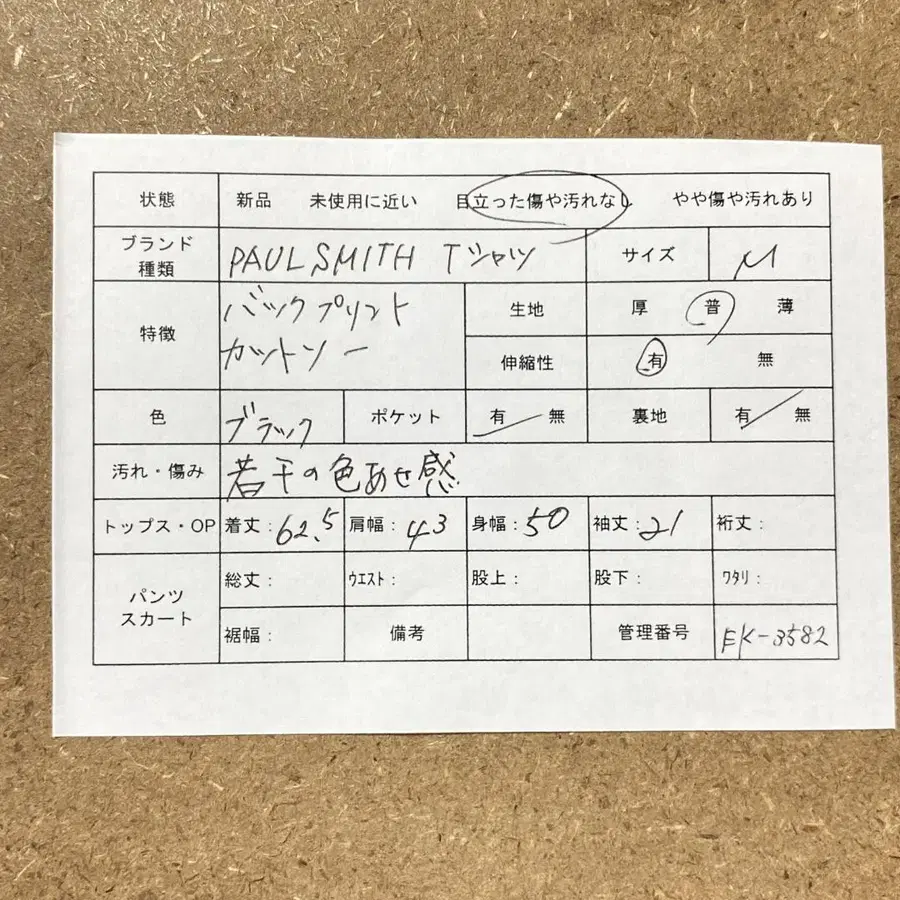 状態 新品 未使用に近い 目立った傷や汚れなし やや傷や汚れあり
ブランド 種類 PAUL SMITH Tシャツ サイズ M
特徴 バックプリント カットソー 生地 厚 普 薄
伸縮性 有 無
色 ブラック ポケット 有 無 裏地 有 無
汚れ・傷み 若干の色あせ感
トップス・OP 着丈: 62.5 肩幅: 43 身幅: 50 袖丈: 21 裄丈:
パンツ スカート 総丈: ウエスト: 股上: 股下: ワタリ:
裾幅: 備考 管理番号 EK-3582